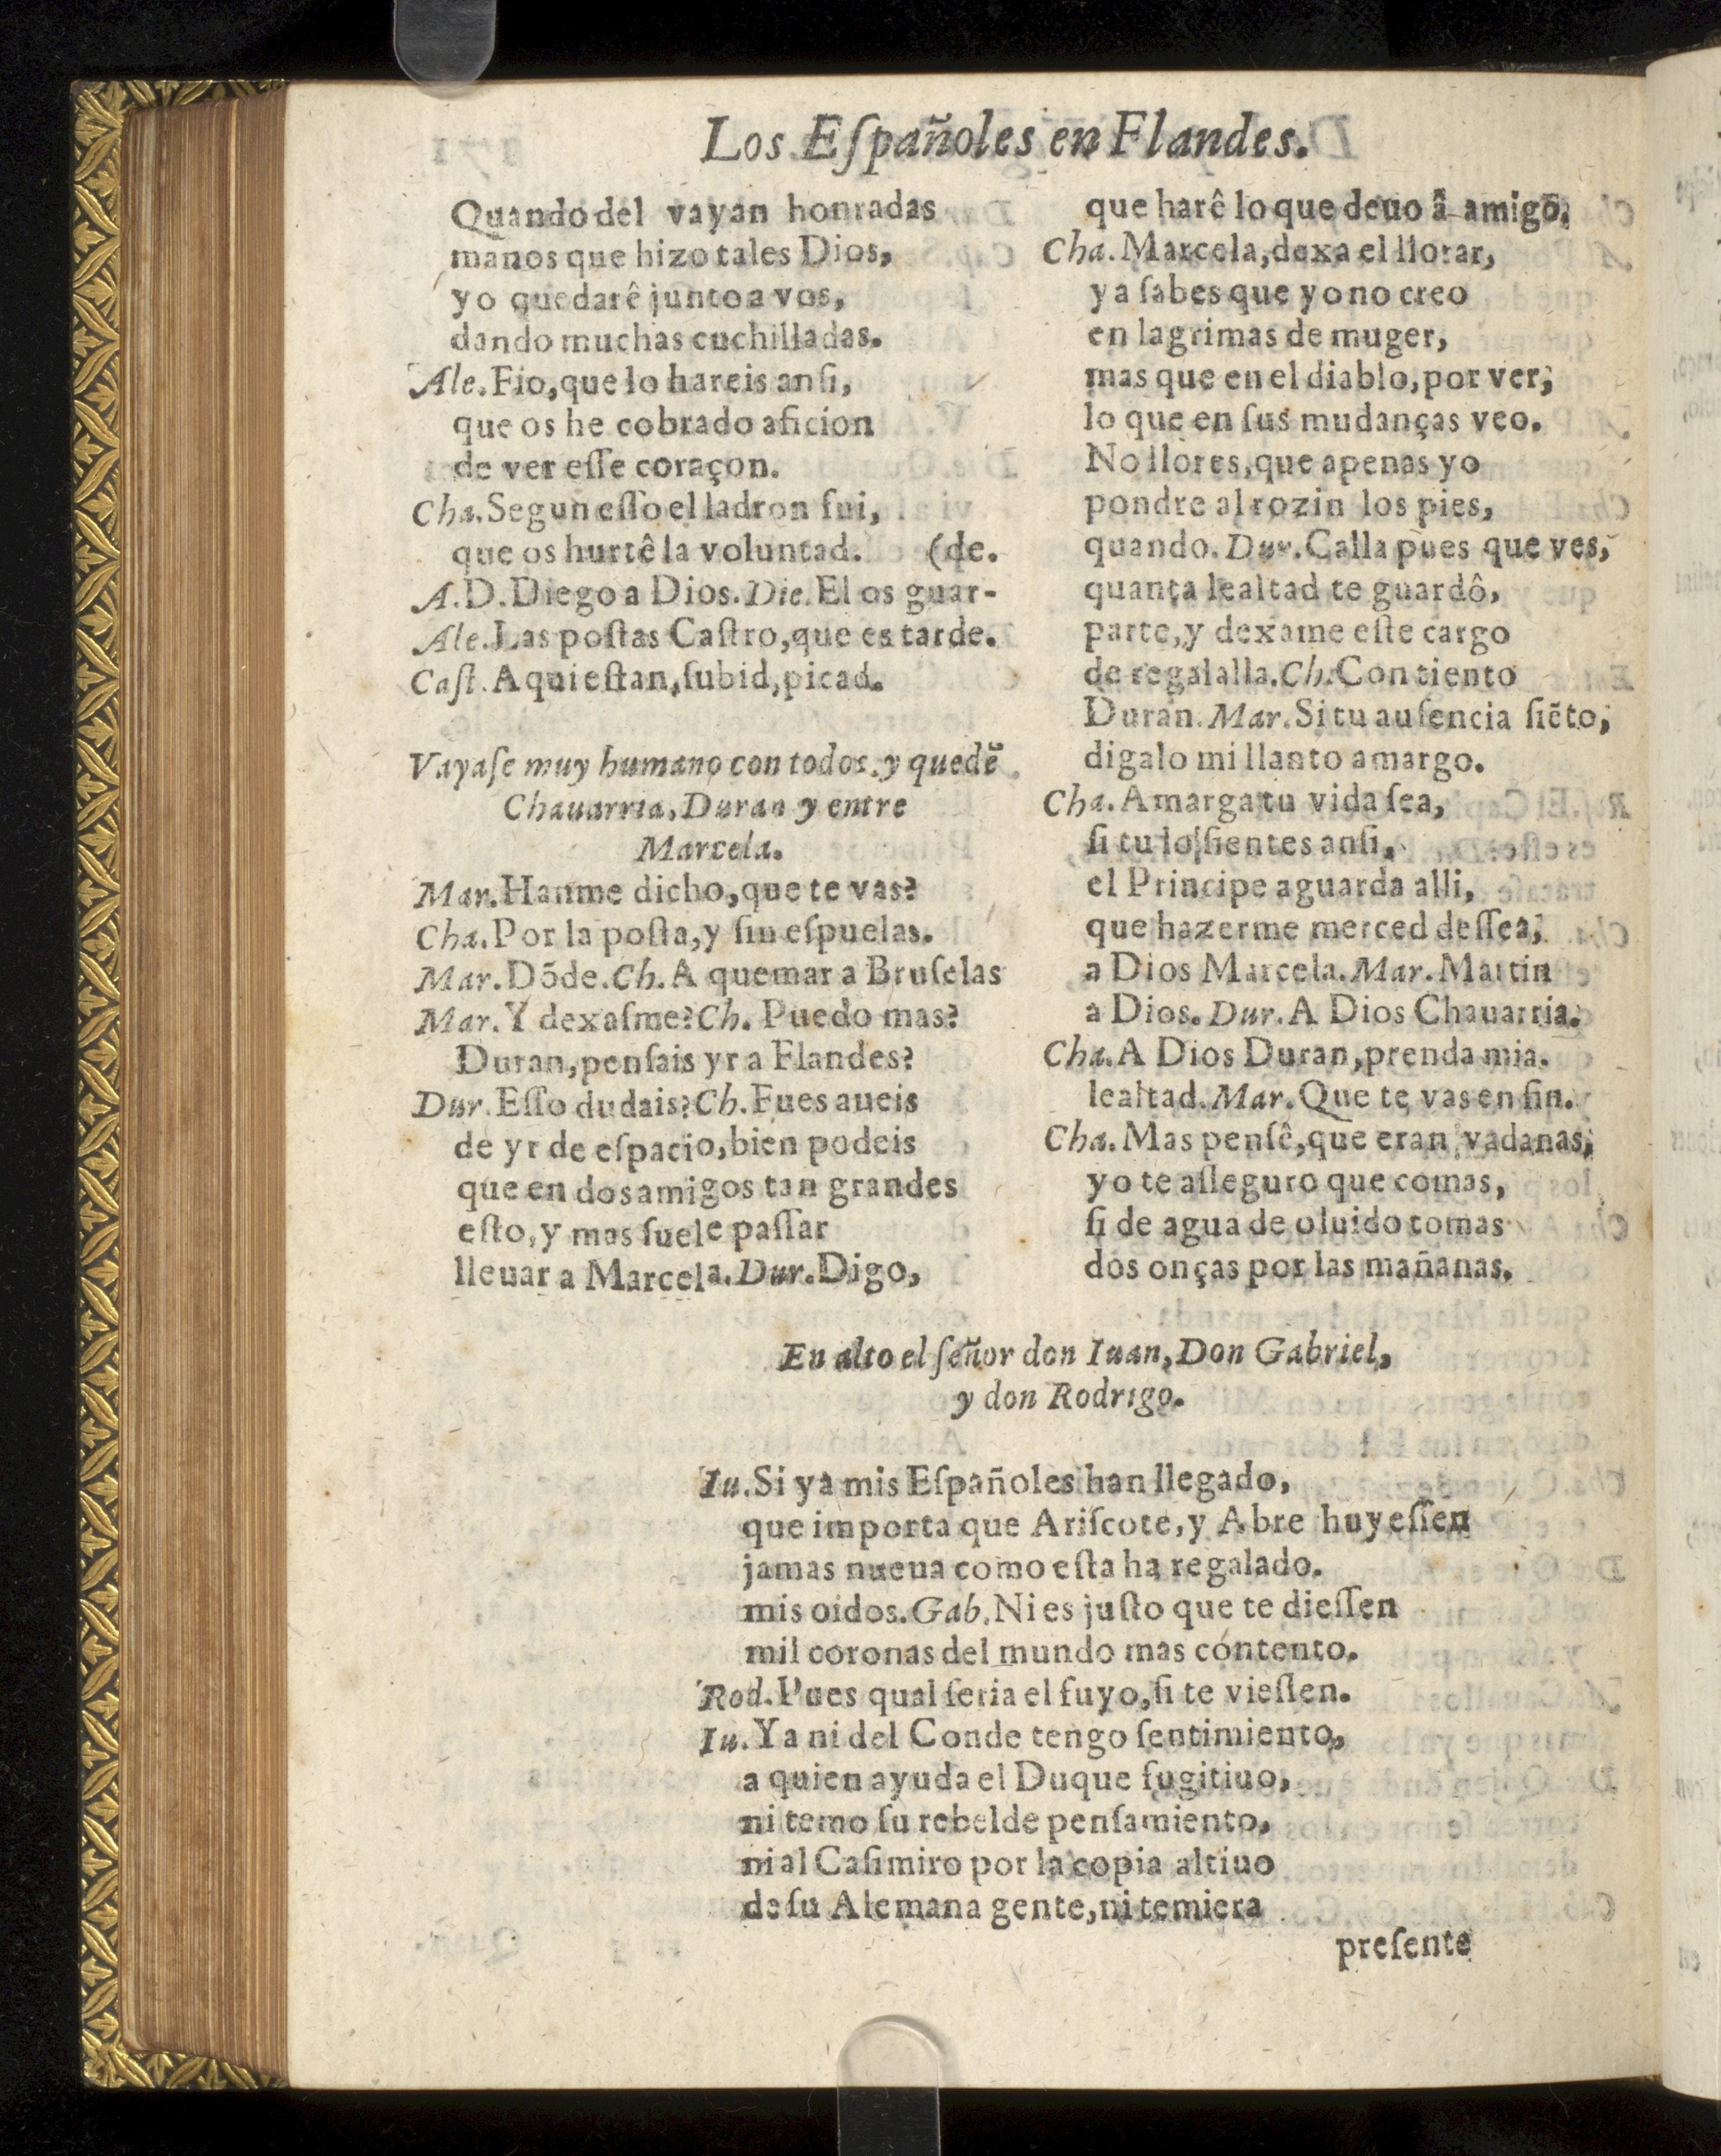 Los Eſpañoles en Flandes.
Quando del vayan honradas
manos que hizo tales Dios,
yo quedarê junto a vos,
dando muchas cuchilladas.
Ale. Fio, que lo hareis anſi,
que os he cobrado aficion
de ver eſſe coraçon.
Cha. Segun eſſo el ladron fui,
que os hurtê la voluntad. (de.
A. D. Diego a Dios. Die. El os guar-
Ale. Las poſtas Caſtro, que es tarde.
Caſt. Aqui eſtan, ſubid, picad.
Vayaſe muy humano con todos, y quedẽ
Chauarria, Duran y entre
Marcela.
Mar. Hanme dicho, que te vas?
Cha. Por la poſta, y ſin eſpuelas.
Mar. Dõde. Ch. A quemar a Bruſelas
Mar. Y dexaſme? Ch. Puedo mas?
Duran, penſais yr a Flandes?
Dur. Eſſo dudais? Ch. Pues aueis
de yr de eſpacio, bien podeis
que en dos amigos tan grandes
eſto, y mas ſuele paſſar
lleuar a Marcela. Dur. Digo,
que harê lo que deuo â amigo,
Cha. Marcela, dexa el llorar,
ya ſabes que yo no creo
en lagrimas de muger,
mas que en el diablo, por ver,
lo que en ſus mudanças veo.
No llores, que apenas yo
pondre al rozin los pies,
quando. Dur. Calla pues que ves,
quanta lealtad te guardô,
parte, y dexame eſte cargo
de regalalla. Ch. Con tiento
Duran. Mar. Si tu auſencia ſiẽto,
digalo mi llanto amargo.
Cha. Amarga tu vida ſea,
ſi tu lo ſientes anſi,
el Principe aguarda alli,
que hazerme merced deſſea,
a Dios Marcela. Mar. Martin
a Dios. Dur. A Dios Chauarria.
Cha. A Dios Duran, prenda mia.
lealtad. Mar. Que te vas en fin.
Cha. Mas penſê, que eran vadanas,
yo te aſſeguro que comas,
ſi de agua de oluido tomas
dos onças por las mañanas.
En alto el ſeñor don Iuan, Don Gabriel,
y don Rodrigo.
Iu. Si ya mis Eſpañoles han llegado,
que importa que Ariſcote, y Abre huyeſſen
jamas nueua como eſta ha regalado.
mis oidos. Gab. Ni es juſto que te dieſſen
mil coronas del mundo mas contento.
Rod. Pues qual ſeria el ſuyo, ſi te vieſſen.
Iu. Ya ni del Conde tengo ſentimiento,
a quien ayuda el Duque fugitiuo,
ni temo ſu rebelde penſamiento,
ni al Caſimiro por la copia altiuo
de ſu Alemana gente, ni temiera
preſente